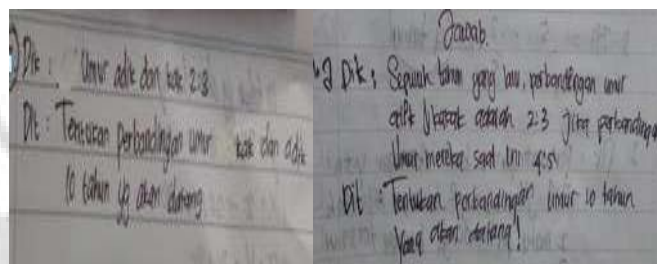 Dik : Umur adik dan kak 2:3
Dit : Tentukan perbandingan umur kak dan adik
10 tahun yg akan datang
Jawab.
Dik : Sepuluh tahun yang lalu, perbandingan umur
adik kakak adalah 2:3 jika perbandingan
umur mereka saat ini 4:5
Dit : Tentukan perbandingan umur 10 tahun
yang akan datang!